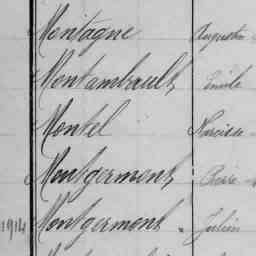 Montagne Augustin
Montambault Emile
Montel Narcisse
Montgermont Pierre
1914 Montgermont Julien